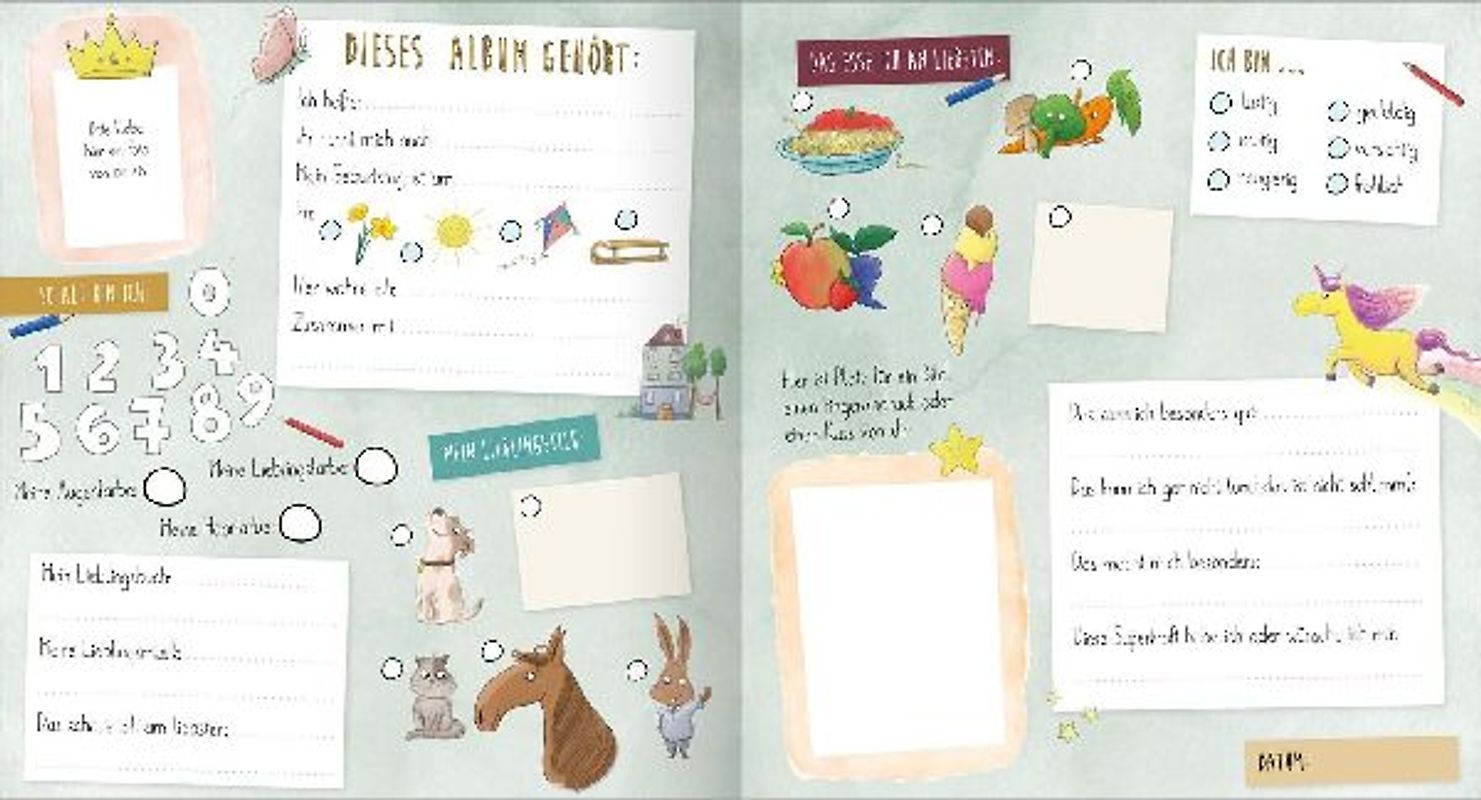 DIESES ALBUM GEHÖRT:
Ich heiße:
mich auch
Mein Geburtstag ist am
Hier wohne ich:
Zusammen mit
SO ALT BIN ICH:
0
1 2 3 4
5 6 7 8 9
Meine Lieblingsfarbe
Meine Augenfarbe
Meine Haarfarbe
Mein Lieblingsbuch:
Meine Lieblingsmusik:
Das ich am liebsten:
MEIN LIEBLINGSTIER:
DAS ESSE ICH AM LIEBSTEN:
ICH BIN ...
lustig
mutig
neugierig
geduldig
vorsichtig
fröhlich
Hier ist Platz für ein Bild,
einen Fingerabdruck oder
einen Kuss von dir
Das kann ich besonders gut:
Das kann ich gar nicht (und das ist nicht schlimm):
Das macht mich besonders:
Diese Superkraft habe ich oder wünsche ich mir:
DATUM: